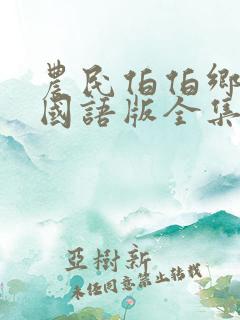 農民伯伯鄉
國語版全集
亞樹新
未経同意禁止轉載